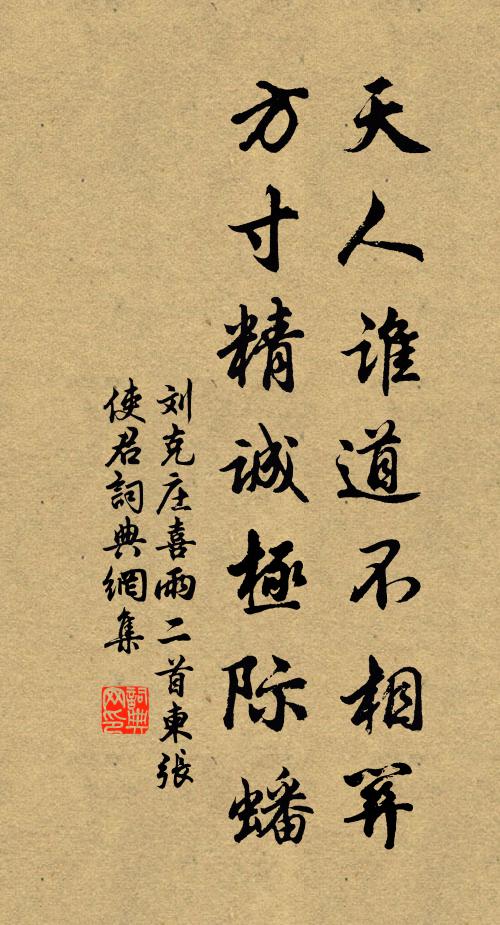 天人誰道不相关
方寸精誠極际蟠
刘克庄喜雨二首東張
使君詞典網集
詞典
网印